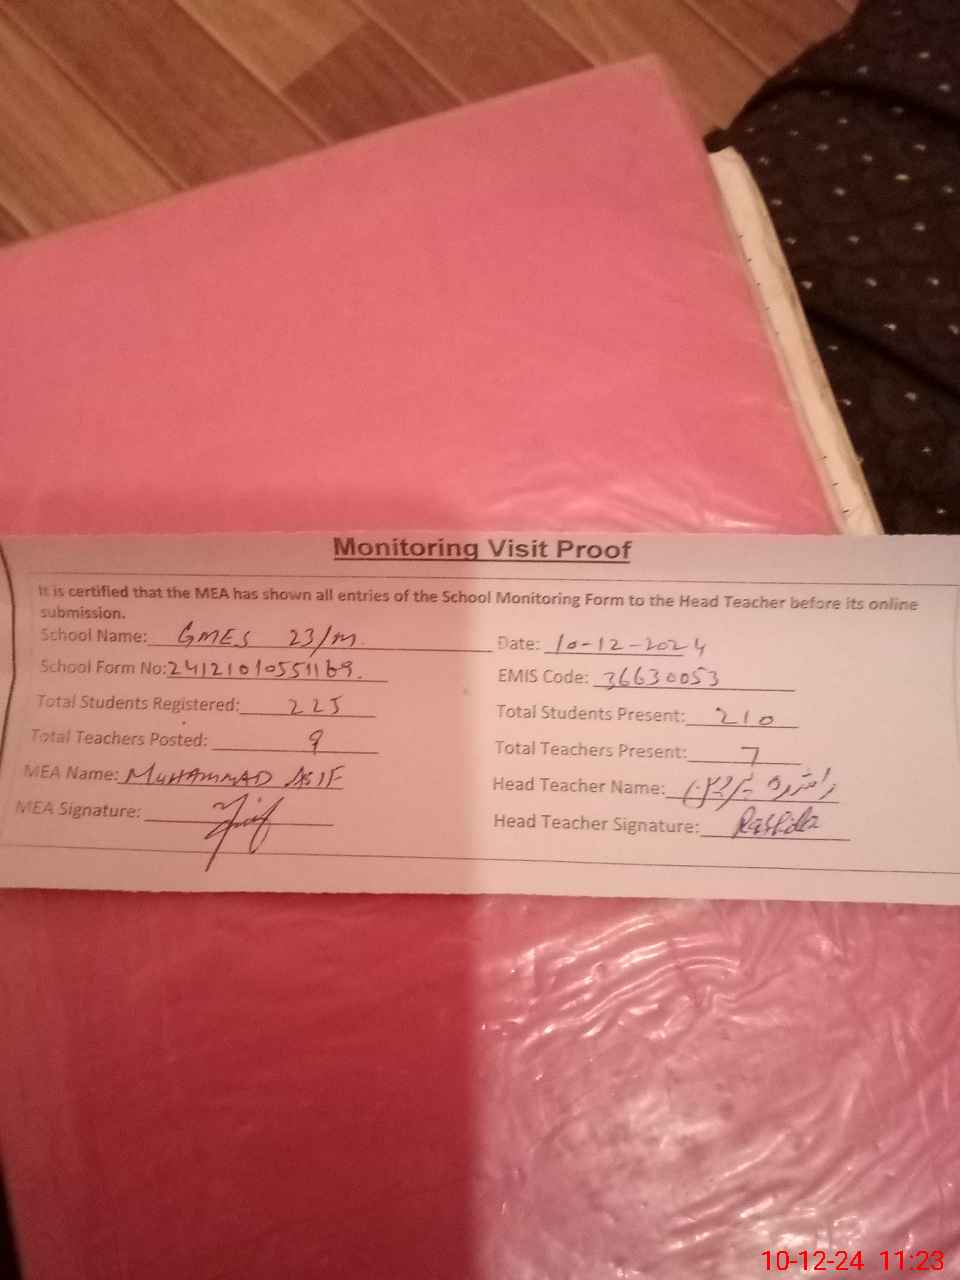 Monitoring Visit Proof
It is certified that the MEA has shown all entries of the School Monitoring Form to the Head Teacher before its online
submission.
School Name: GMES 23/M. Date: 10-12-2024
School Form No: 24121010551169. EMIS Code: 36630053
Total Students Registered: 225 Total Students Present: 210
Total Teachers Posted: 9 Total Teachers Present: 7
MEA Name: MUHAMMAD ASIF Head Teacher Name: راشدہ
MEA Signature: Head Teacher Signature: Rashida
10-12-24 11:23